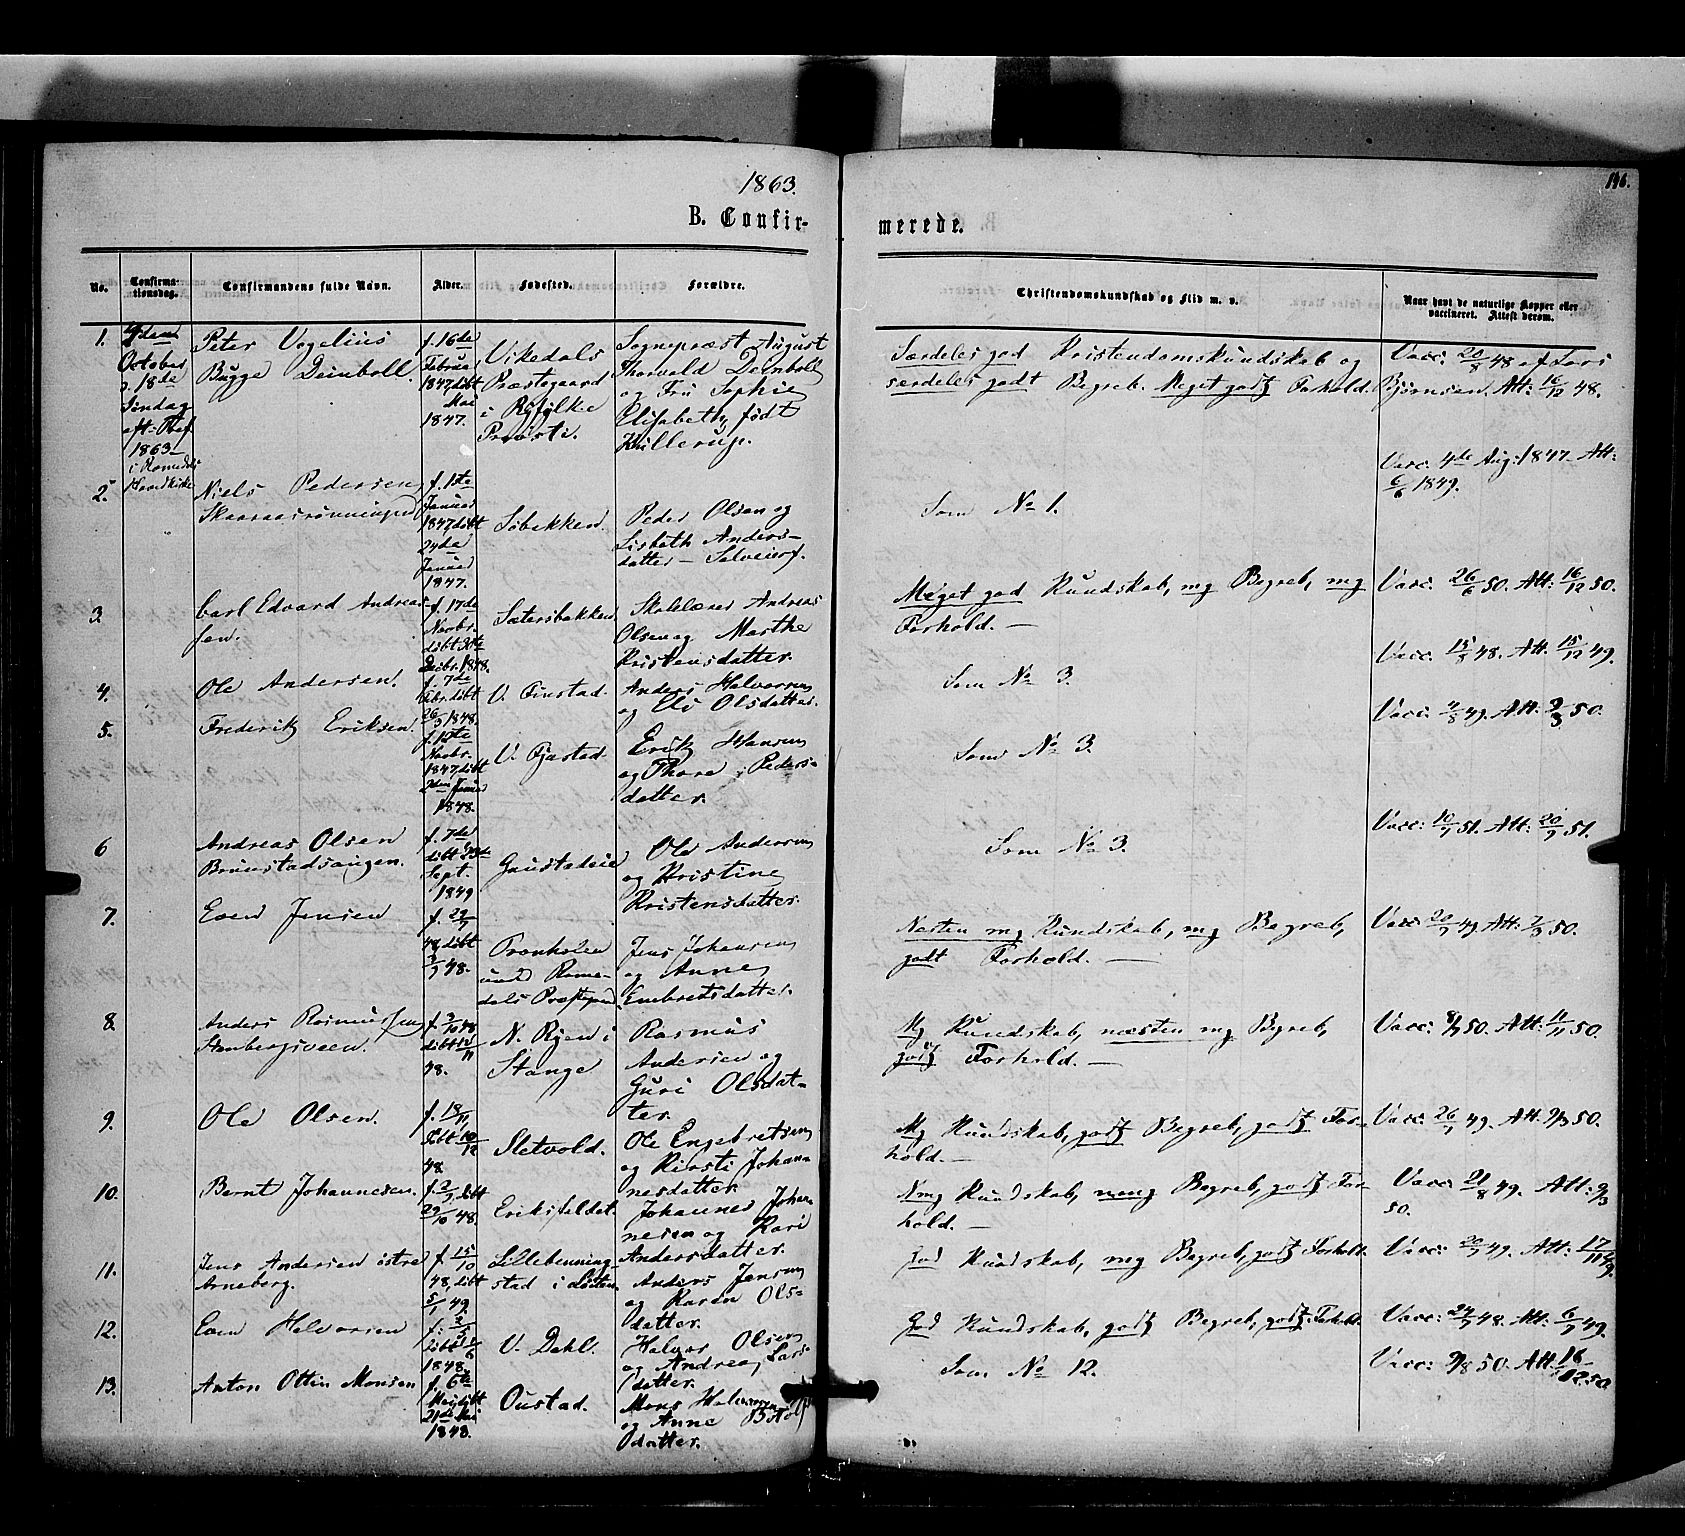 1863.
196.
B. Confir-
merede.
No.
Confirma-
tionsdag.
Confirmandens fulde Navn.
Alder.
Fødested.
Forældre.
Christendomskundskab og Flid m. v.
Naar havt de naturlige Kopper eller
vaccineret. Attest derom.
October
18de
Søndag
1863
1.
Peter Vogelius
Bugge Deinboll.
f. 16de
Februar
1847, døbt
Mai
1847.
Vikedals
Præstegaard
i Ryfylke
Provsti.
Sognepræst August
Thorvald Deinboll
og Fru Sophie
Elisabeth, født
Hillerup.
Særdeles god Kristendomskundskab og
særdeles godt Begreb. Meget godt Forhold.
Vacc: 20/8 48 af Lars
Bjørnsen. Att: 16/12 48.
2.
Niels Pedersen
f. 1ste
Januar
1847, døbt
24de
Januar
1847.
Søbakken.
Peder Olsen og
Lisbeth Anders-
datter
Som No 1.
Vacc. 4de Aug: 1847 Att:
6/6 1849.
3.
Carl Edvard Andreas-
sen.
f. 17de
Novbr.
døbt
Decbr. 1848.
Sætersbakken
Skolelærer Andreas
Olsen og Marthe
Kristensdatter.
Meget god Kundskab, mg Begreb, mg
Forhold. —
Vacc: 26/6 50. Att: 16/12 50.
4.
Ole Andersen.
f. 7de
Febr. døbt
26/3 1848.
V. Finstad.
Anders Halvorsen
og Eli Olsdatter.
Som No 3.
Vacc. 15/8 48. Att. 15/12 49.
5.
Frederik Eriksen.
Novbr.
1847, døbt
2den Januar
1848.
V. Fjæstad.
Erik Hansen
og Thore Peders-
datter.
Som No 3.
Vacc: 4/8 49. Att. 2/3 50.
6
Andreas Olsen
Brunstadsangen.
f. 7de
døbt 23de
Sept.
1849
Gaustadeie
Ole Andersen
og Kristine
Kristensdatter.
Som No 3.
Vacc: 10/9 51. Att: 20/9 51.
7.
Even Jensen
48, døbt
48.
under Rome-
dals Præstegjeld
Jens Johansen
og Anne
Embretsdatter.
Næsten mg Kundskab, mg Begreb,
godt Forhold. —
Vacc: 20/7 49 Att: 2/3 50.
8.
Anders Rasmussen
Stenbergsveen.
f. 3/10 48
døbt 12/11
48.
N. Ryen i
Stange
Rasmus
Andersen og
Guri Olsdat-
ter.
Mg Kundskab, næsten mg Begreb,
godt Forhold. —
Vacc: 8/9 50. Att: 11/11 50.
9.
Ole Olsen.
f. 18/11
døbt 10/12
48
Sletvold.
Ole Engebretsen
og Kirsti Johan-
nesdatter.
Mg Kundskab, godt Begreb, godt For-
hold. —
Vacc: 26/7 49. Att. 2/3 50.
10.
Bernt Johannesen.
døbt
29/10 48.
Eriksfaldet.
Johannes Johan-
nesen og Kari
Andersdatter.
Nmg Kundskab, nmg Begreb, godt For-
hold. —
Vacc: 21/8 49. Att: 2/3
50.
11.
Jens Andersen østre
Arneberg.
f. 15/10
48, døbt
5/1 49.
Lillebenning-
stad i Løiten.
Anders Jensen
og Karen Ols-
datter.
God Kundskab, mg Begreb, godt Forhold.
Vacc: 20/7 49. Att: 17/11 49.
12.
Even Halvorsen
døbt
1848.
V. Dahl.
Halvor Olsen
og Andrea Lars-
datter.
God Kundskab, godt Begreb, godt Forhold.
Vacc: 24/9 48. Att: 6/7 49.
13.
Anton Ottin Monsen
f. 6te
Mai, døbt
21de Mai
1848.
Oustad.
Mons Halvorsen
og Anne
datter.
Som No 12.
Vacc: 9/8 50. Att: 16/12 50.